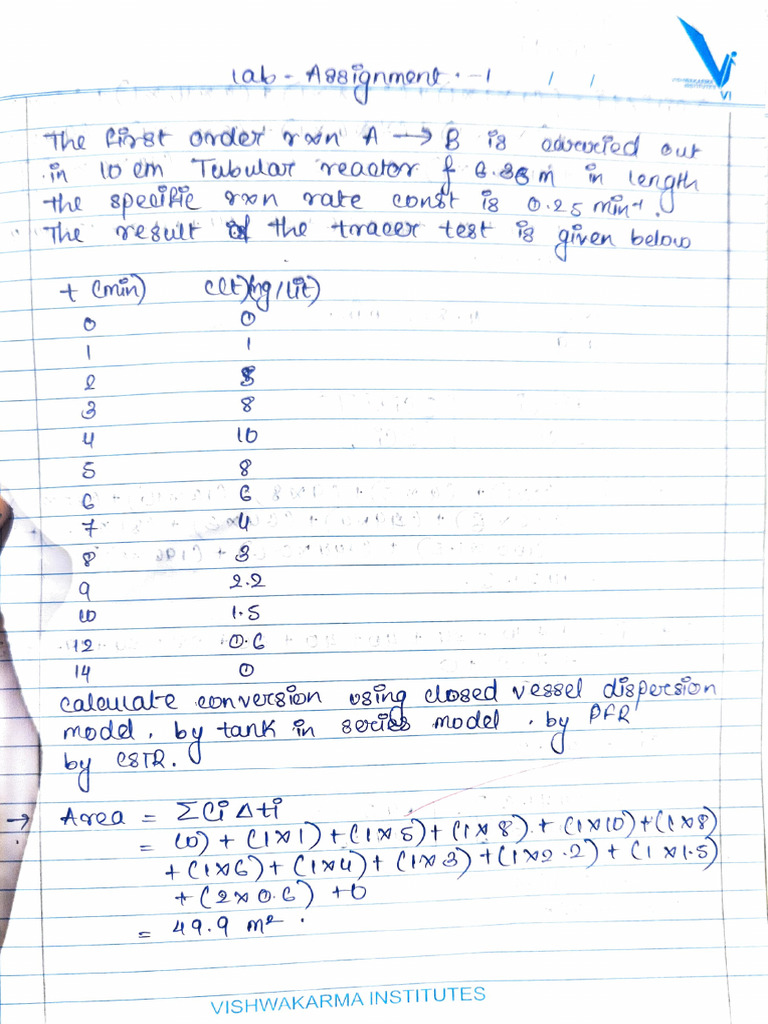 VISHWAKARMA INSTITUTES
VI
Lab - Assignment. -1 / /
The first order rxn A → B is carried out
in 10 cm Tubular reactor f 6.36 m in length
the specific rxn rate const is 0.25 min⁻¹.
The result of the tracer test is given below
t (min) C(t)(mg/lit)
0 0
1 1
2 5
3 8
4 10
5 8
6 6
7 4
8 3
9 2.2
10 1.5
12 0.6
14 0
calculate conversion using closed vessel dispersion
model. by tank in series model. by PFR
by CSTR.
→ Area = ΣCi Δti
= (0) + (1×1) + (1×5) + (1×8) + (1×10) + (1×8)
+ (1×6) + (1×4) + (1×3) + (1×2.2) + (1×1.5)
+ (2×0.6) + 0
= 49.9 m².
VISHWAKARMA INSTITUTES